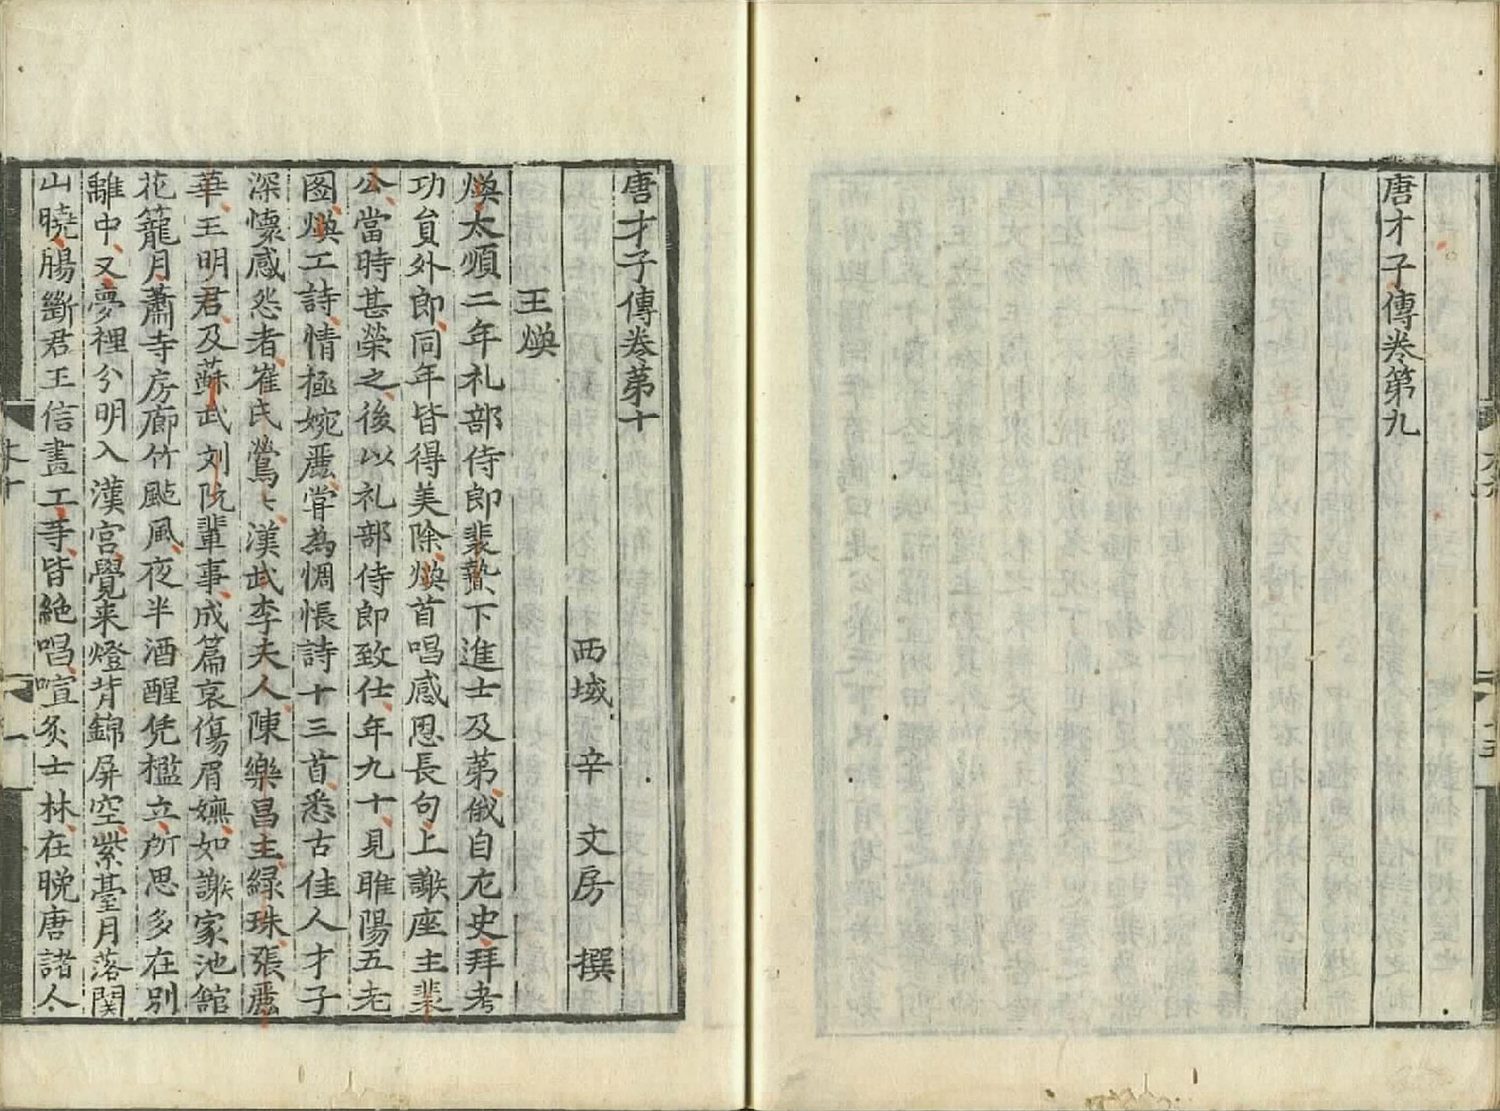 唐才子傳卷第九
唐才子傳卷第十
西域 辛 文房 撰
王煥
煥太順二年礼部侍郎裴贄下進士及第俄自尤史拜考
功貟外郎同年皆得美除煥首唱感恩長句上謝座主裴
公當時甚荣之後以礼部侍郎致仕年九十見睢陽五老
图煥工詩情極婉麗甞為惆悵詩十三首悉古佳人才子
深懷感怨者崔氏鶯々漢武李夫人陳樂昌主緑珠張麗
華王明君及蘇武刘阮輩事成篇哀傷眉嫵如謝家池舘
花籠月蕭寺房廊竹颭風夜半酒醒凭檻立所思多在别
離中又夢裡分明入漢宮覺来燈背錦屏空紫臺月落関
山曉腸斷君王信畫工等皆絶唱喧炙士林在晚唐諸人